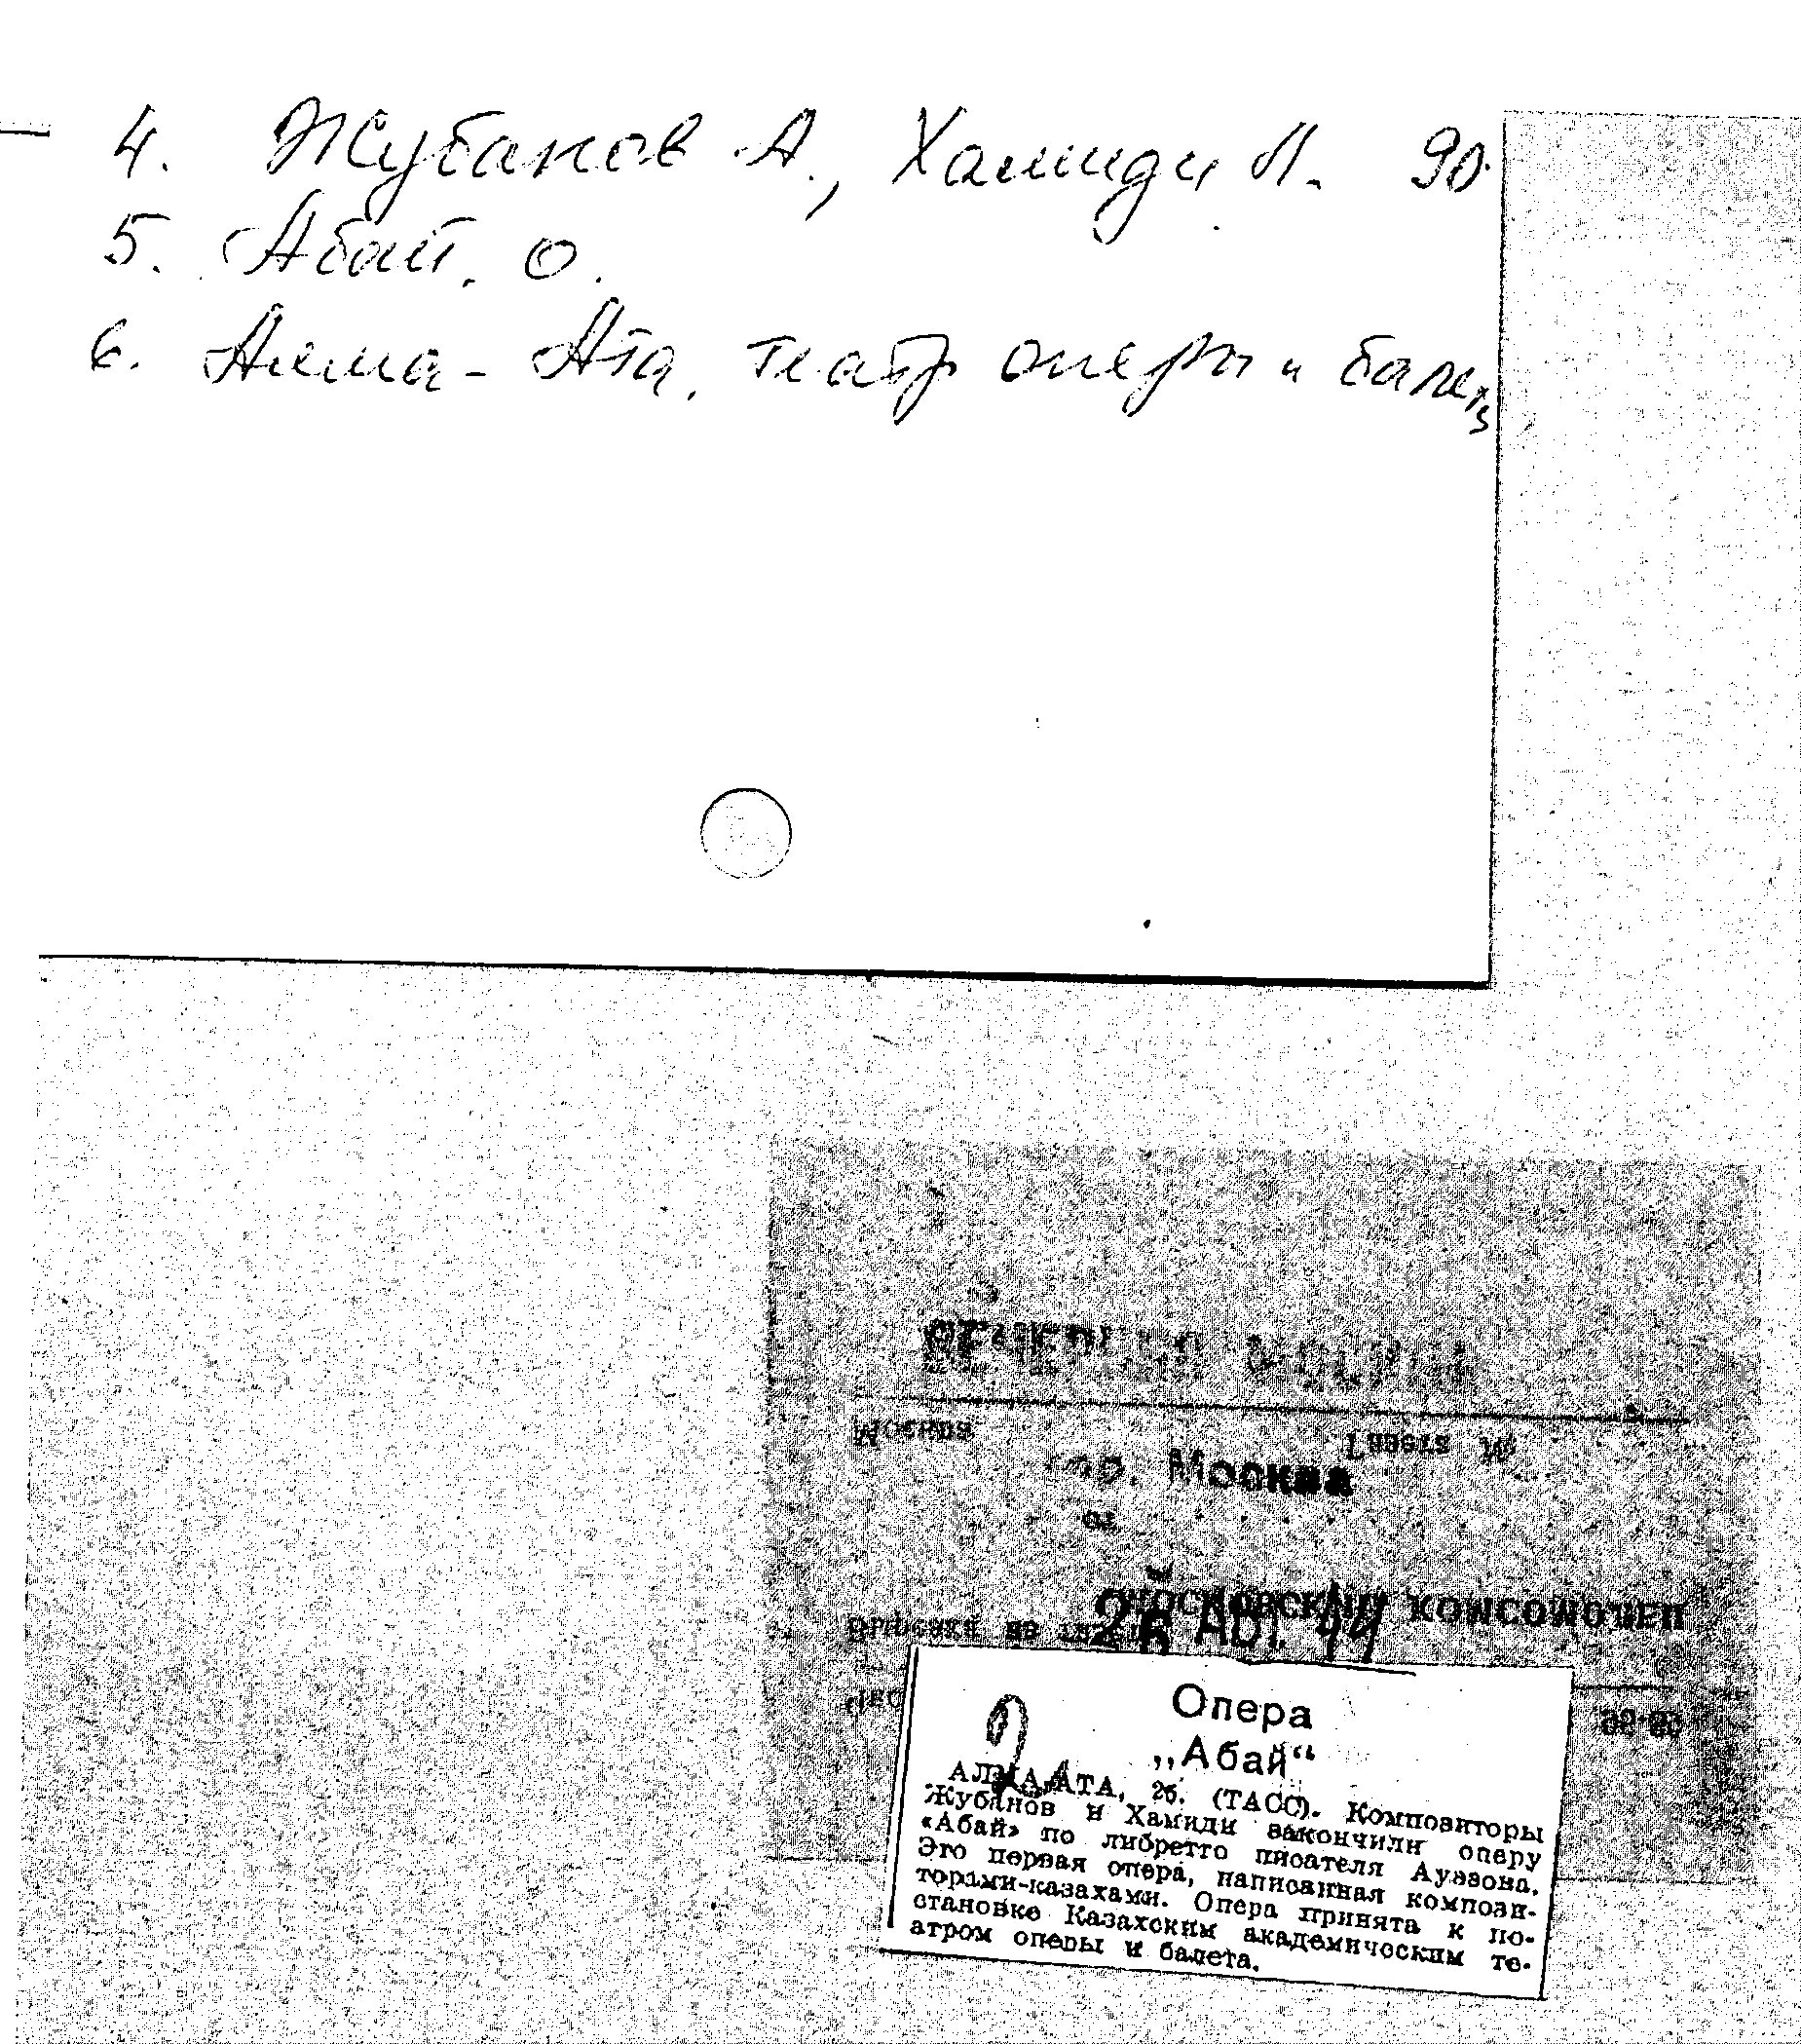 4. Жубанов А., Хамиди Л. 90.
5. Абай. о.
6. Алма-Ата. театр оперы и балета
Москва
Газета №
гор. Москва
от
МОСКОВСКИЙ КОМСОМОЛЕЦ
Вырезка из газеты
26 АВГ. 44
Опера
„Абай“
АЛМА-АТА, 26. (ТАСС). Композиторы
Жубанов и Хамиди закончили оперу
«Абай» по либретто писателя Ауэзова.
Это первая опера, написанная компози-
торами-казахами. Опера принята к по-
становке Казахским академическим те-
атром оперы и балета.